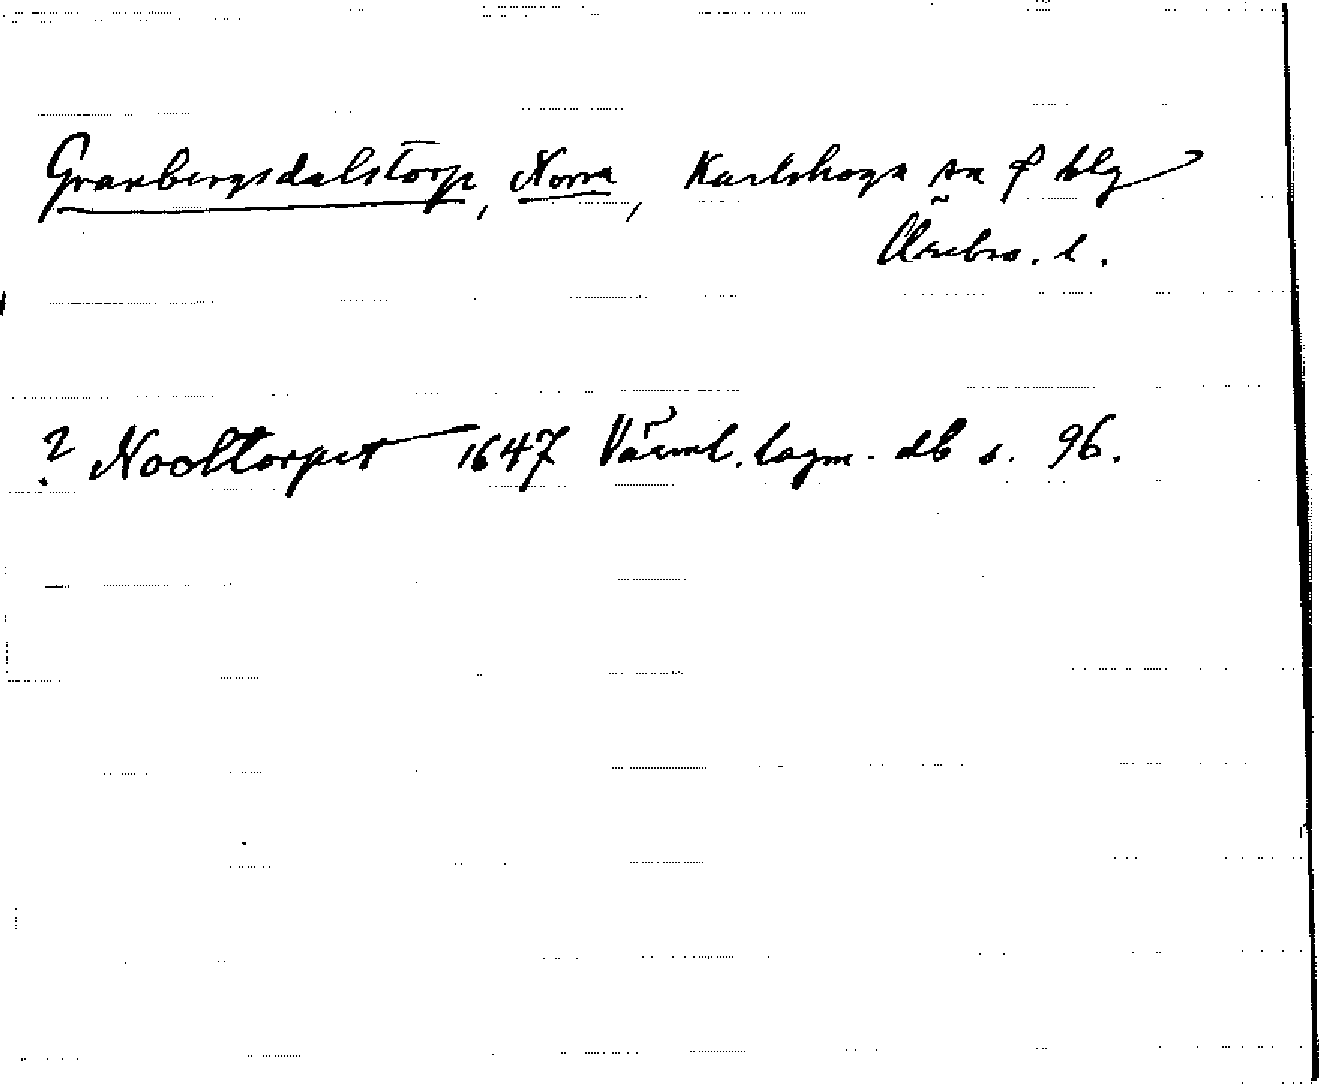 Granbergsdalstorp, Norra, Karlskoga sn o blg
Örebro. l.
? Nooltorpet 1647 Värml. lagm. db s. 96.